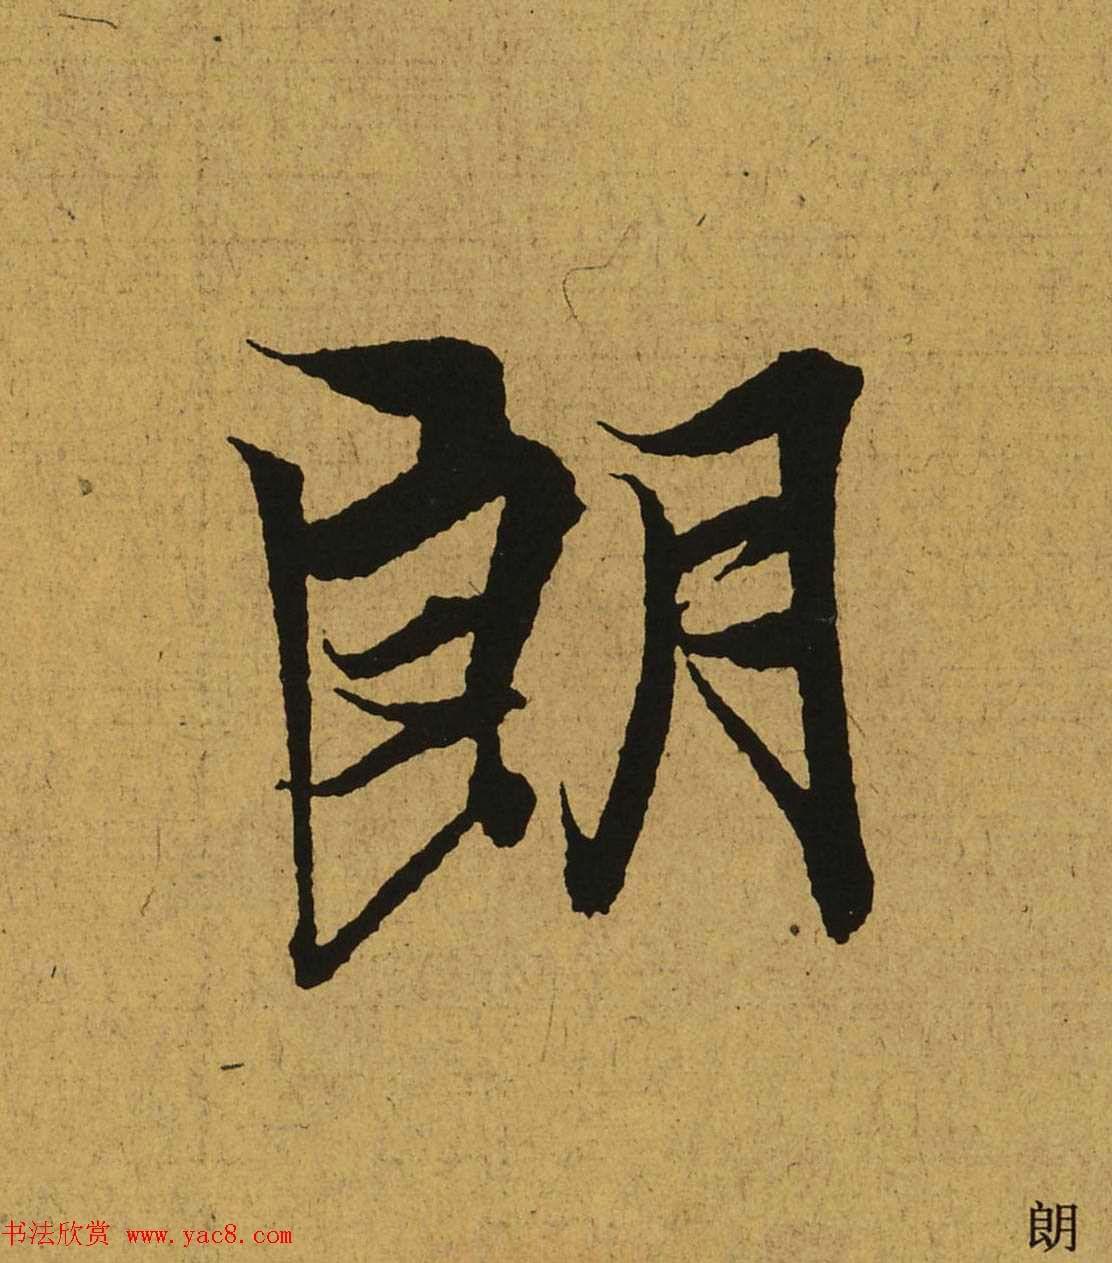 朗
书法欣赏 www.yac8.com
朗